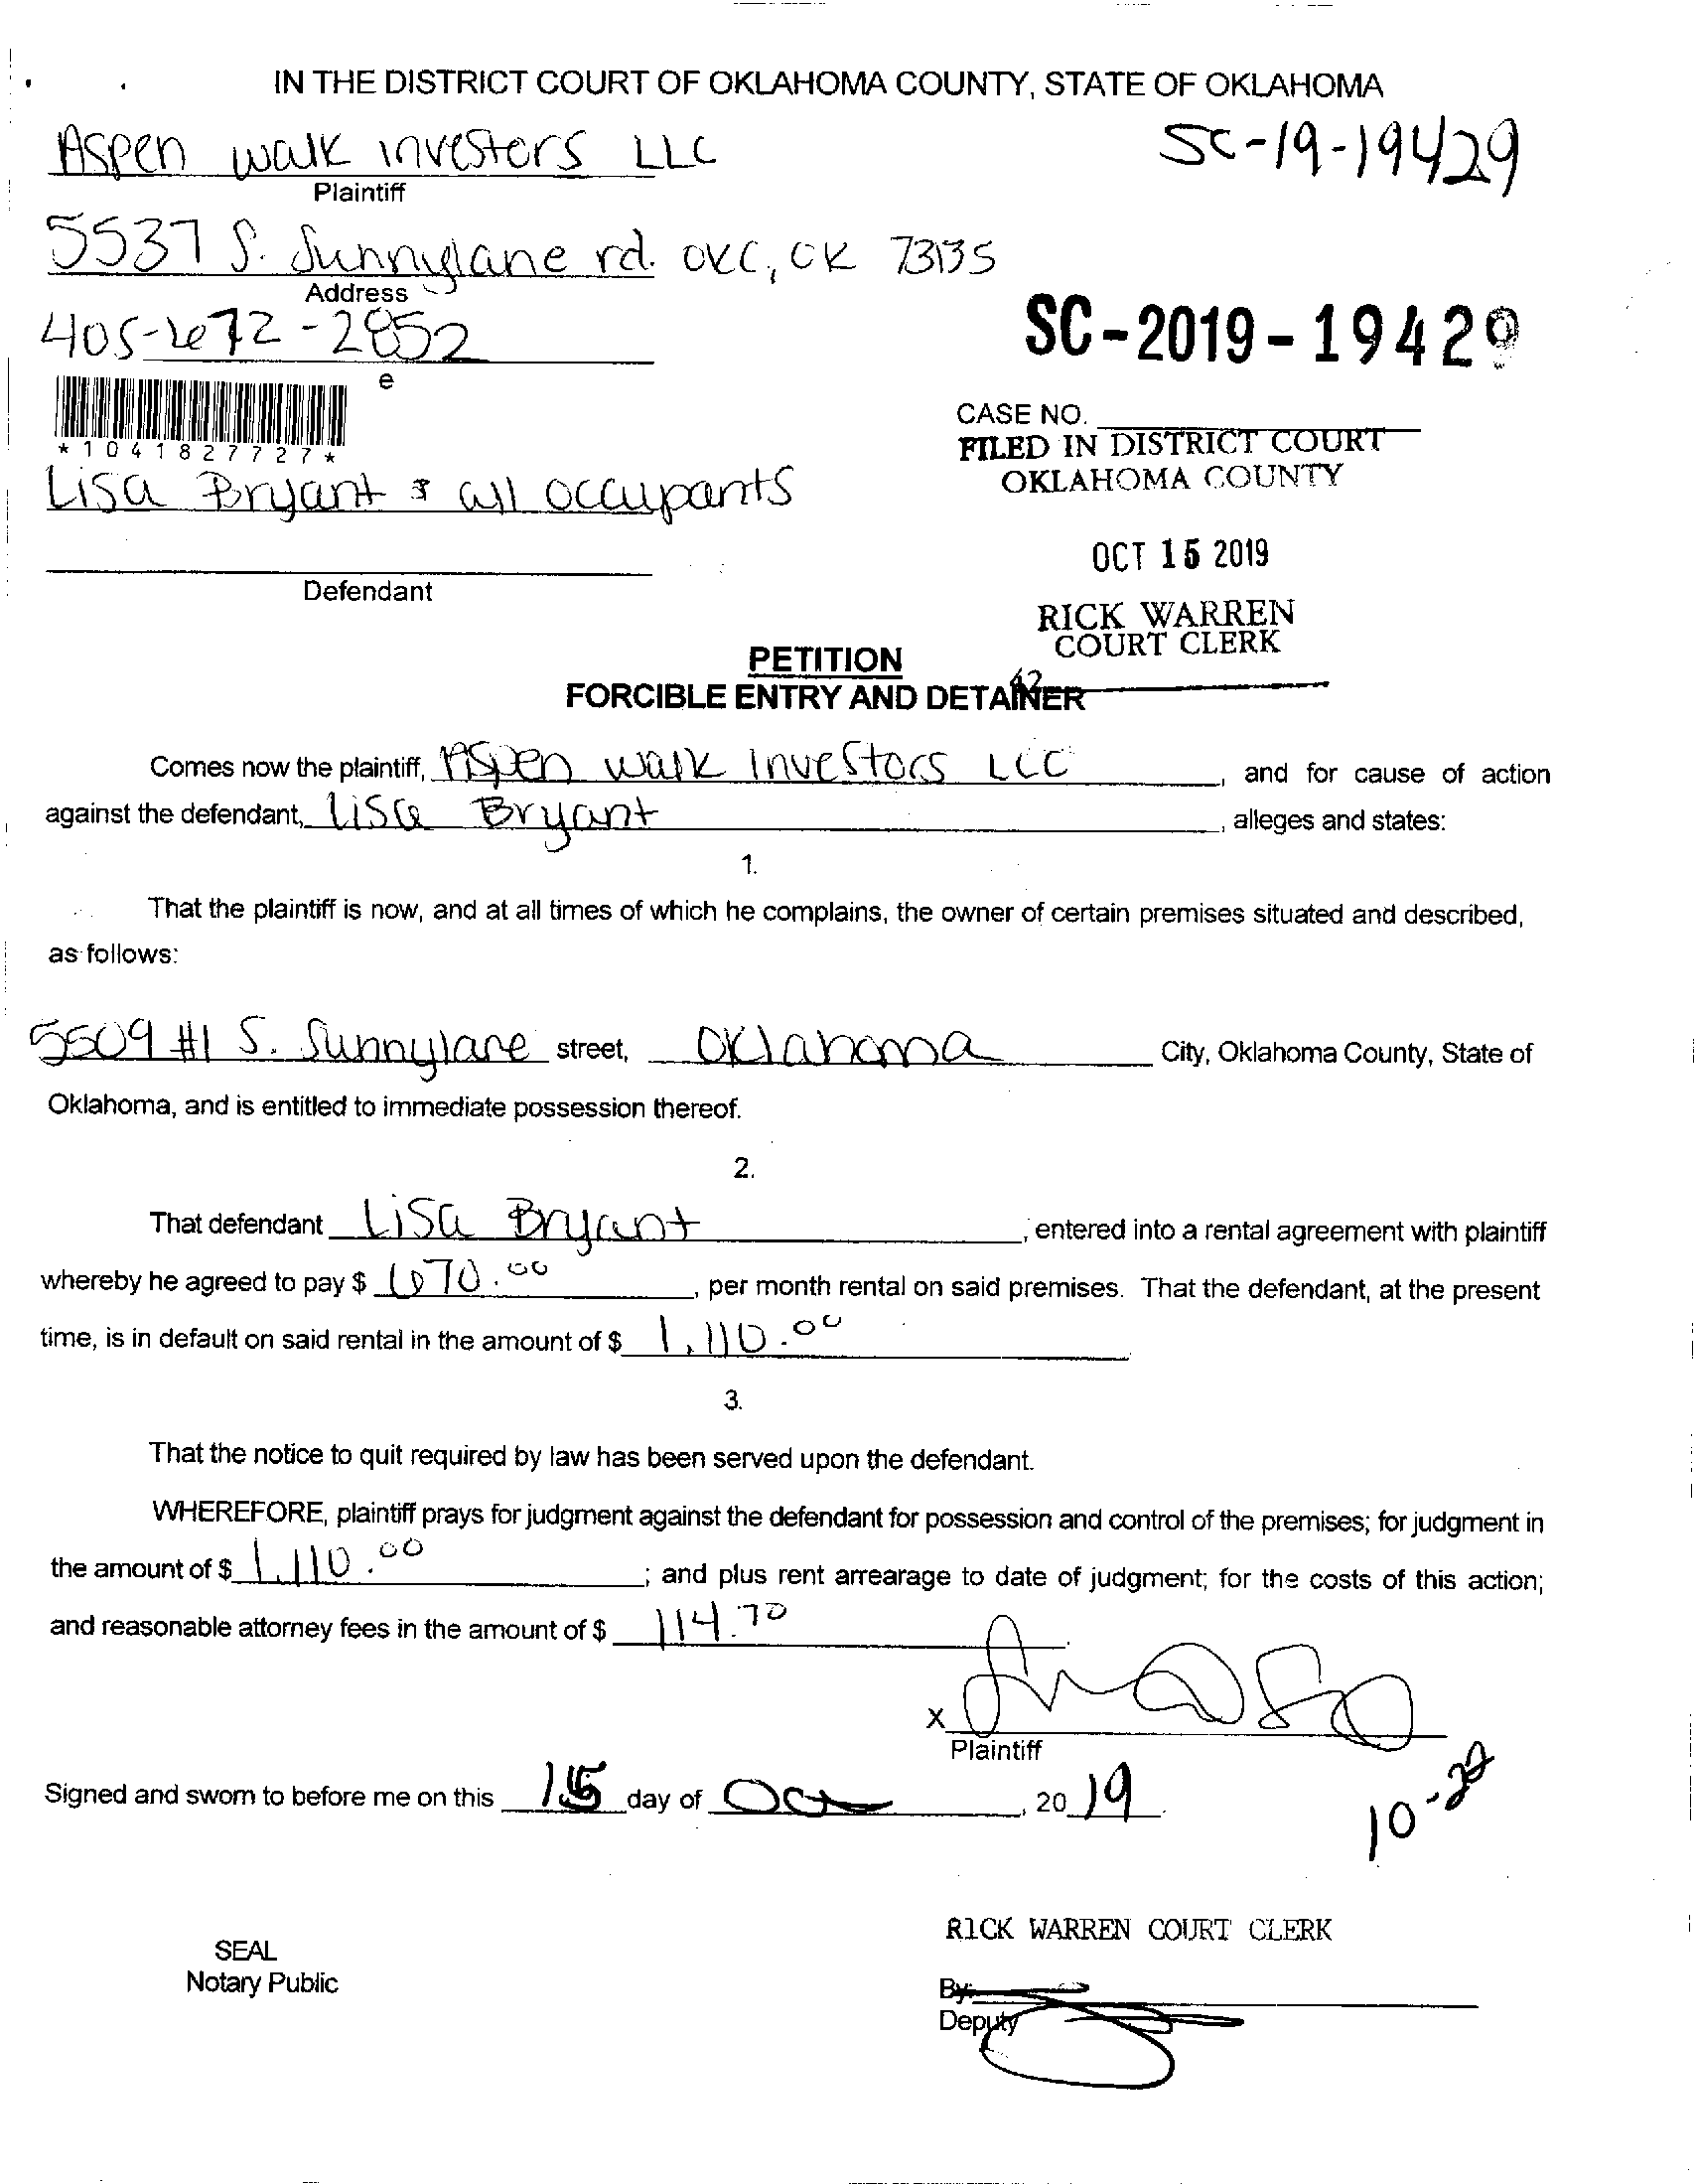 IN THE DISTRICT COURT OF OKLAHOMA COUNTY, STATE OF OKLAHOMA
Aspen walk investors LLC
SC-19-19429
Plaintiff
5537 S. Sunnylane rd. OKC, OK 73135
Address
405-672-2852
SC-2019-19429
e
CASE NO.
*1041827727*
FILED IN DISTRICT COURT
OKLAHOMA COUNTY
Lisa Bryant & all occupants
OCT 15 2019
Defendant
RICK WARREN
COURT CLERK
PETITION
42
FORCIBLE ENTRY AND DETAINER
Comes now the plaintiff, Aspen walk Investors LLC, and for cause of action
against the defendant, Lisa Bryant, alleges and states:
1.
That the plaintiff is now, and at all times of which he complains, the owner of certain premises situated and described,
as follows:
5509 #1 S. Sunnylane street, Oklahoma City, Oklahoma County, State of
Oklahoma, and is entitled to immediate possession thereof.
2.
That defendant Lisa Bryant, entered into a rental agreement with plaintiff
whereby he agreed to pay $ 670.00, per month rental on said premises. That the defendant, at the present
time, is in default on said rental in the amount of $ 1,110.00.
3.
That the notice to quit required by law has been served upon the defendant.
WHEREFORE, plaintiff prays for judgment against the defendant for possession and control of the premises; for judgment in
the amount of $ 1,110.00; and plus rent arrearage to date of judgment; for the costs of this action;
and reasonable attorney fees in the amount of $ 114.70.
X
Plaintiff
Signed and sworn to before me on this 15 day of Oct, 2019.
10-28
RICK WARREN COURT CLERK
SEAL
Notary Public
By:
Deputy